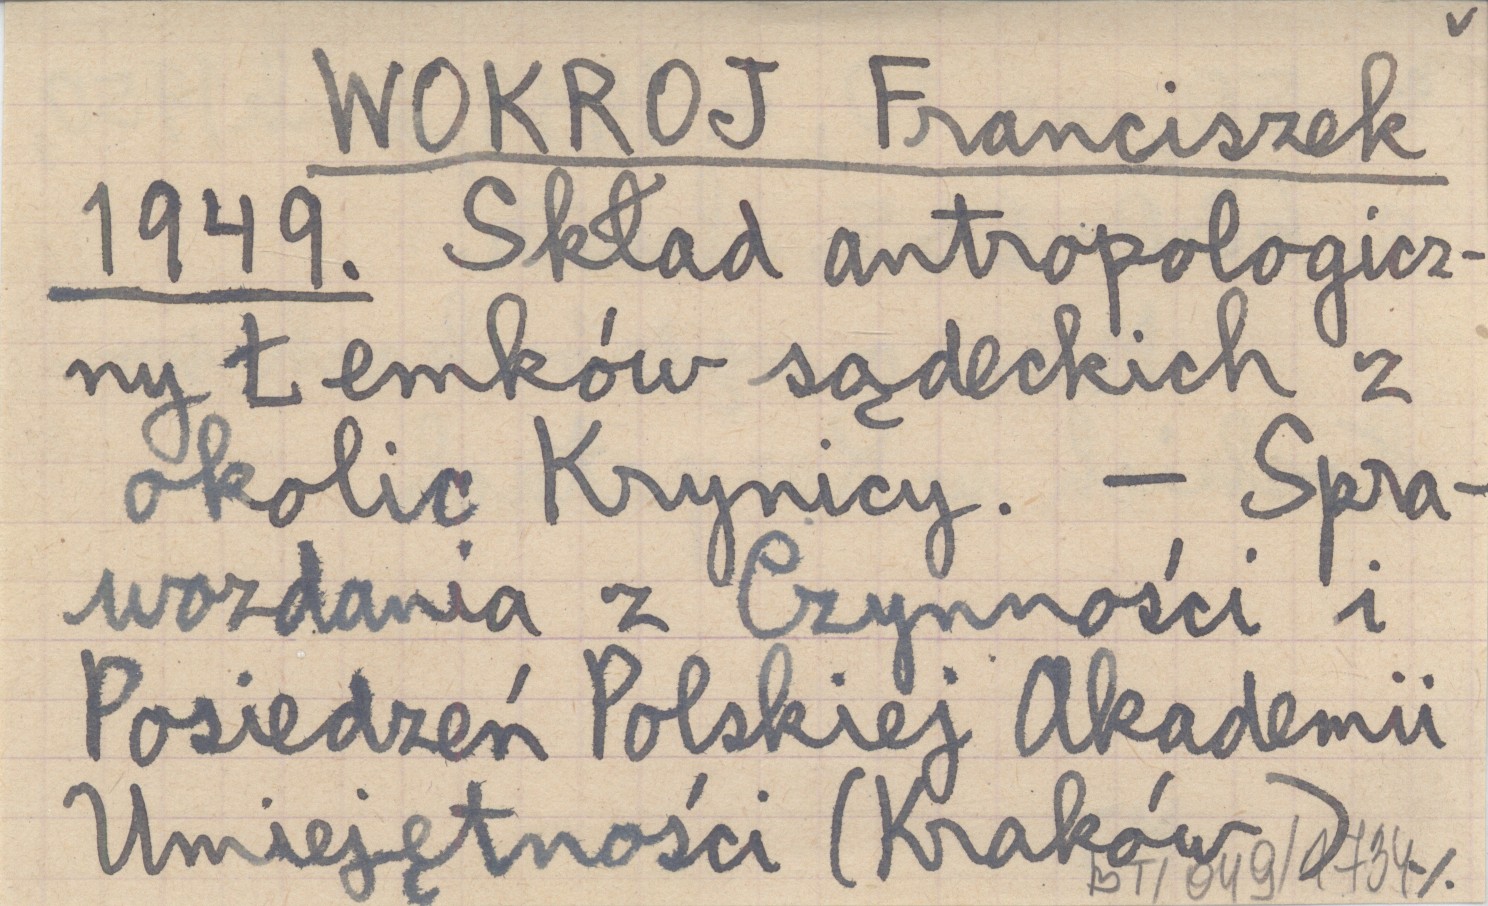 v
WOKROJ Franciszek
1949. Skład antropologicz-
ny Łemków sądeckich z
okolic Krynicy. — Spra-
wozdania z Czynności i
Posiedzeń Polskiej Akademii
Umiejętności (Kraków) ./.
BT/949/1734